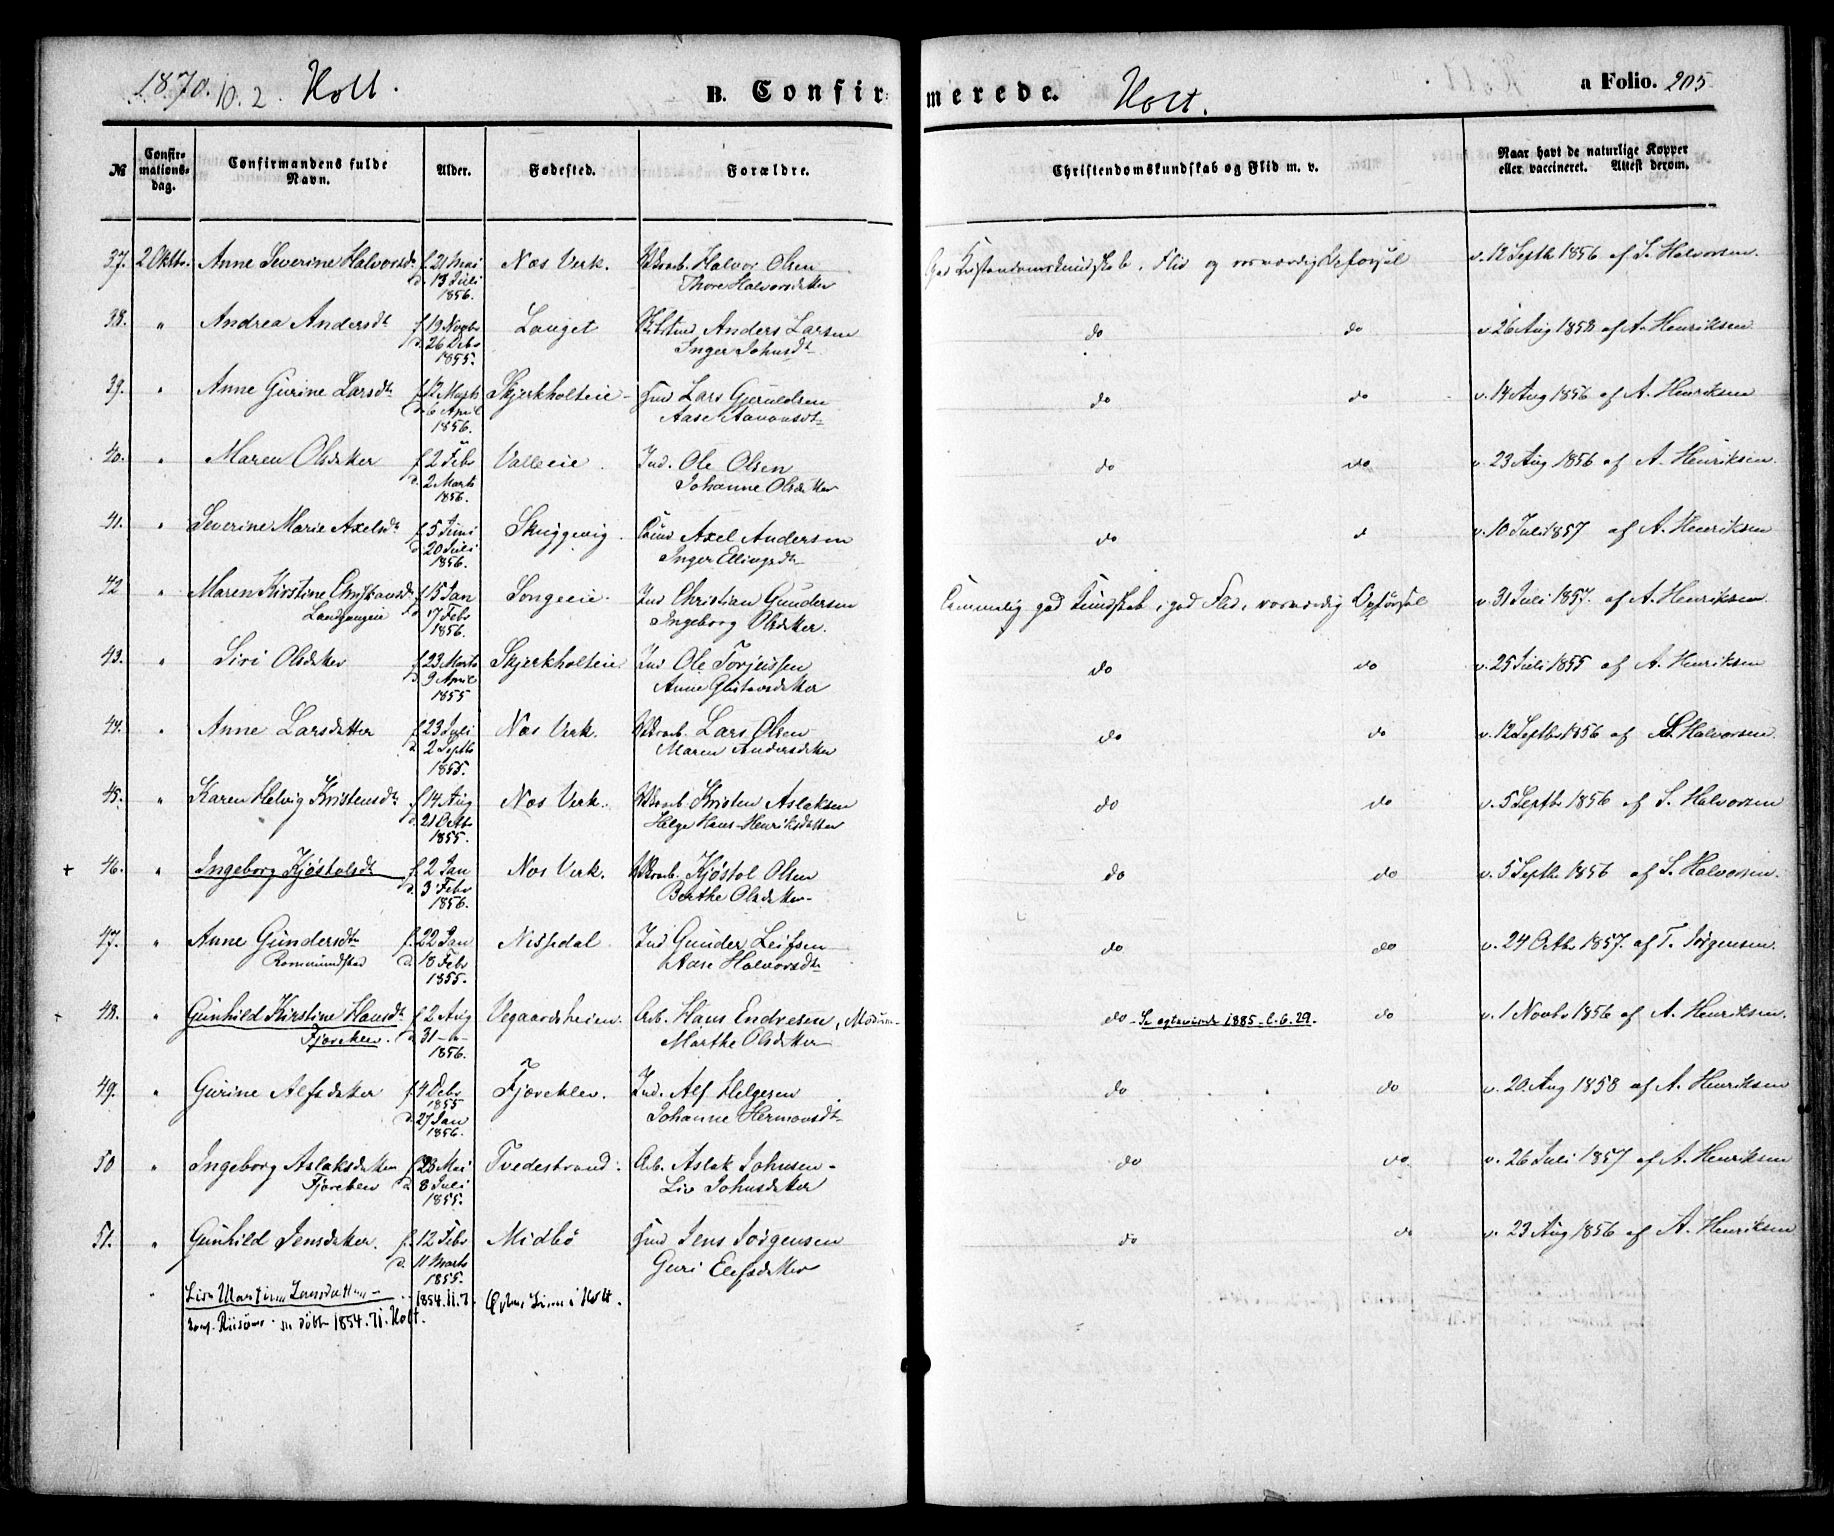 1870. 10. 2. Holt. B. Confirmerede. Holt. a Folio. 205
№ Confirmationsdag. Confirmandens fulde Navn. Alder. Fødested. Forældre. Christendomskundskab og Flid m. v. Naar havt de naturlige Kopper eller vaccineret. Attest derom.
37. 2 Oktbr. Anne Severine Halvorsdr f. 21 Mai Næs Verk. Halvor Olsen God Kristendomskundskab, Flid og vorværdig Opførsel v. 12 Septbr 1856 af S. Halvorsen.
d. 13 Juli Thore Halvorsdatter
1856.
38. " Andrea Andersdtr f. 19 Novbr Lauget Anders Larsen do do v. 26 Aug 1858 af A. Henriksen
d. 26 Debr Inger Johnsdtr
1855.
39. " Anne Gurine Larsdtr f. 12 Marts Skjerkholteie Gmd Lars Gjeruldsen do do v. 14 Aug 1856 af A. Henriksen
d. 6 April Aase Aanonsdtr
1856.
40. " Maren Olsdatter f. 2 Febr Valleeie. Ind. Ole Olsen do do v. 23 Aug 1856 af A. Henriksen.
d. 2 Marts Johanne Olsdatter
1856.
41. " Severine Marie Axelsdtr f. 5 Juni Skuggevig. Axel Andersen do d v. 10 Juli 1857 af A. Henriksen
d. 20 Juli Inger Ellingsdtr
1856.
42 " Maren Kirstine Christiansdtr f. 15 Jan Songeeie. Ind Christian Gundersen Temmelig god Kundskab, god Flid, vorværdig Opførsel v. 31 Juli 1857. af A. Henriksen.
17 Febr Ingeborg Olsdatter.
1856.
43. " Siri Olsdatter f. 23 Marts Skjerkholteie. Ind Ole Torjussen do do v. 25 Juli 1855 af A. Henriksen
d. 9 April Anne Gustavsdatter
1855
44. " Anne Larsdatter f. 23 Juli Næs Verk. Lars Olsen do do v. 12 Septbr 1856 af S. Halvorsen.
d. 2 Septb Maren Andersdatter
1855.
45. " Karen Helvig Kristensdtr f. 14 Aug Næs Verk. Kristen Aslaksen do do v. 5 Septbr 1856 af S. Halvorsen
d. 21 Octbr Helge Hans-Henriksdatter
1855.
+ 46. " Ingeborg Kjøstolsdtr f. 2 Jan Næs Verk. Kjøstol Olsen do do v. 5 Septbr 1856 af S. Halvorsen.
d. 3 Febr Berthe Olsdatter
1856.
47. " Anne Gundersdtr f. 22 Jan Nissedal. Ind Gunder Leifsen do do v. 24 Octbr 1857. af T. Jørgensen.
d. 18 Febr Aase Halvorsdtr
1855.
+ 48. " Gunhild Kirstine Hansdtr f. 2 Aug Vegaardsheien. Arb. Hans Endresen, do - Se egteviede 1885-l.6.29. do v. 1 Novbr 1856 af A. Henriksen.
Fjærekleiv. d. 31 -"- Marthe Olsdatter
1856.
49. " Gurine Alfsdatter f. 4 Debr Fjæreklev. Ind. Alf Helgesen do do v. 20 Aug 1858 af A. Henriksen
1855
d. 27 Jan Johanne Hermonsdtr
1856.
50 " Ingeborg Aslaksdatter f. 23 Mai Tvedestrand. Arb. Aslak Johnsen do do v. 26 Juli 1857 af A. Henriksen
d. 8 Juli Liv Johnsdatter
1855.
51. " Gunhild Jensdatter. f. 12 Febr Midbø Gmd Jens Jørgensen do do v. 23 Aug 1856 af A. Henriksen
d. 11 Marts Guri Elefsdatter
1855.
1854.11.7. i Holt.
døbte 1854.71. Holt.